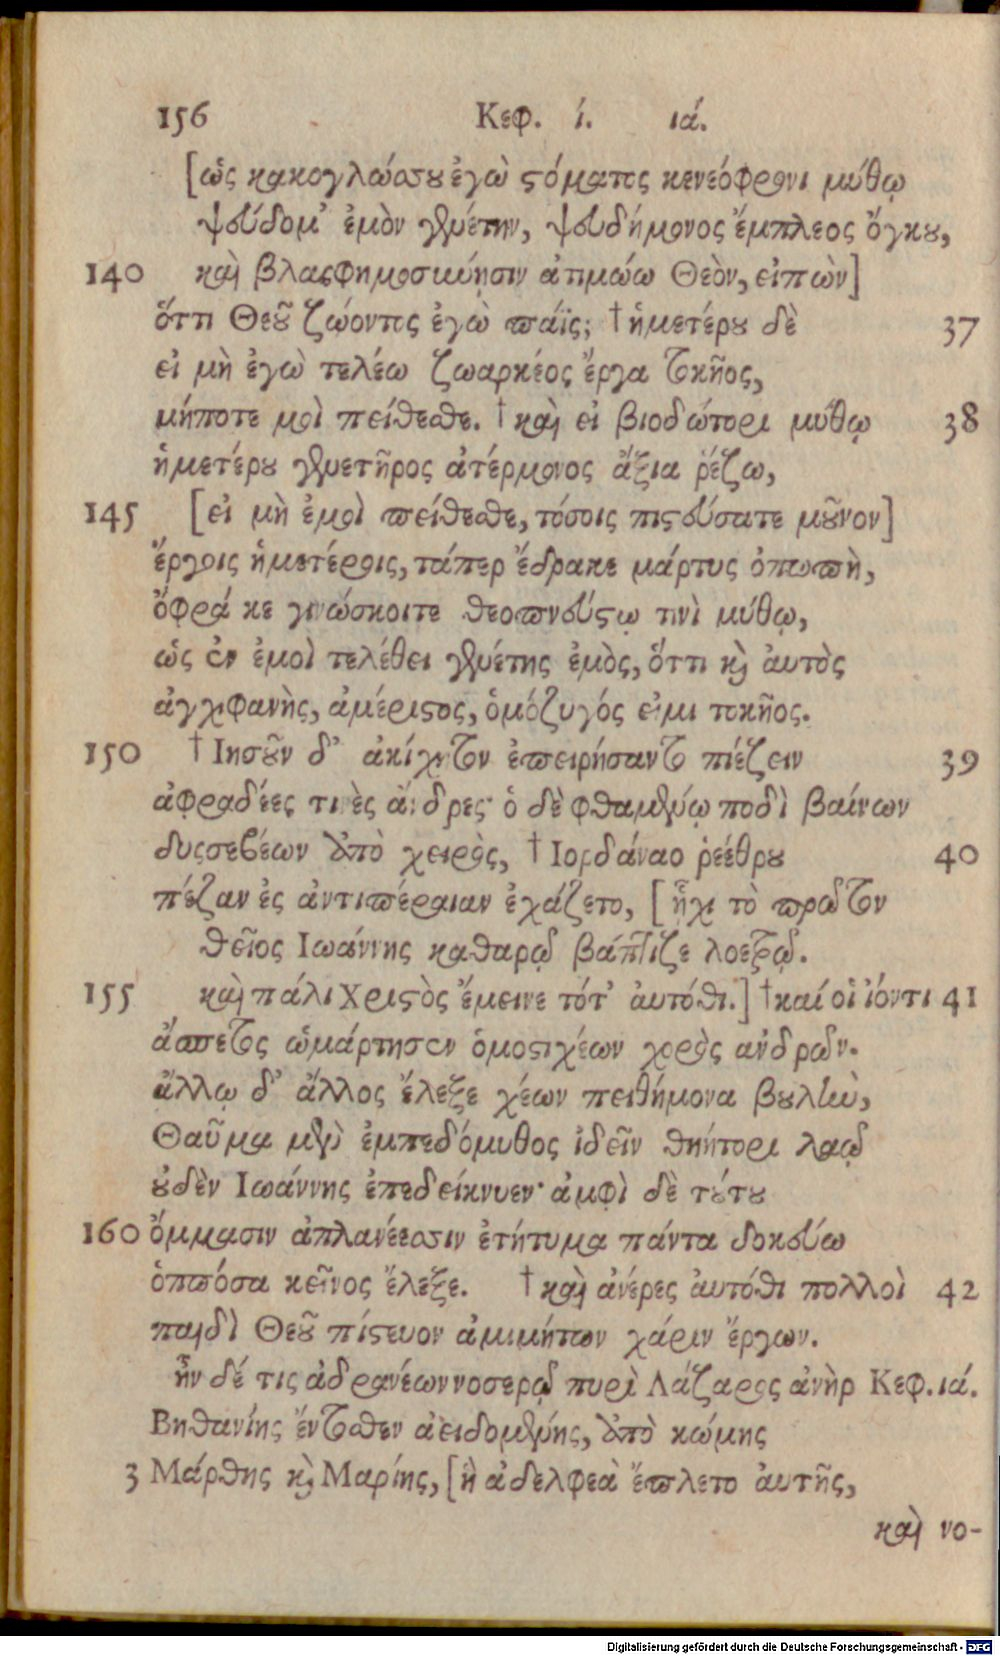 156 Κεφ. ί. ιά.
[ὡς κακογλώσσου ἐγὼ στόματος κενεόφρονι μύθῳ
ψεύδομ' ἐμὸν γενέτην, ψευδήμονος ἔμπλεος ὄγκου,
140 καὶ βλασφημοσύνῃσιν ἀτιμώω Θεὸν, εἰπὼν]
ὅττι Θεοῦ ζώοντος ἐγὼ πάϊς; † ἡμετέρου δὲ 37
εἰ μὴ ἐγὼ τελέω ζωαρκέος ἔργα τοκῆος,
μήποτε μοὶ πείθεσθε. † καὶ εἰ βιοδώτορι μύθῳ 38
ἡμετέρου γενετῆρος ἀτέρμονος ἄξια ῥέζω,
145 [εἰ μὴ ἐμοὶ πείθεσθε, τόσοις πιστεύσατε μοῦνον]
ἔργοις ἡμετέροις, τάπερ ἔδρακε μάρτυς ὀπωπὴ,
ὄφρά κε γινώσκοιτε θεοπνεύστῳ τινὶ μύθῳ,
ὡς ἐν ἐμοὶ τελέθει γενέτης ἐμὸς, ὅττι καὶ ἀυτὸς
ἀγχιφανὴς, ἀμέριστος, ὁμόζυγός εἰμι τοκῆος.
150 † Ιησοῦν δ' ἀκίχητον ἐπειρήσαντο πιέζειν 39
ἀφραδέες τινὲς ἄνδρες· ὁ δὲ φθαμένῳ ποδὶ βαίνων
δυσσεβέων ἀπὸ χειρὸς, † Ιορδάναο ῥεέθρου 40
πέζαν ἐς ἀντιπέραιαν ἐχάζετο, [ἧχι τὸ πρῶτον
θεῖος Ιωάννης καθαρῷ βάπτιζε λοετρῷ.
155 καὶ πάλι Χριστὸς ἔμεινε τότ' ἀυτόθι.] † καί οἱ ἰόντι 41
ἄσπετος ὡμάρτησεν ὁμοστιχέων χορὸς ανδρῶν.
ἄλλῳ δ' ἄλλος ἔλεξε χέων πειθήμονα βουλὴν,
Θαῦμα μὲν ἐμπεδόμυθος ἰδεῖν θηήτορι λαῷ
οὐδὲν Ιωάννης ἐπεδείκνυεν· ἀμφὶ δὲ τούτου
160 ὄμμασιν ἀπλανέεσσιν ἐτήτυμα πάντα δοκεύω
ὁππόσα κεῖνος ἔλεξε. † καὶ ἀνέρες ἀυτόθι πολλοὶ 42
παιδὶ Θεοῦ πίστευον ἀμιμήτων χάριν ἔργων.
ἦν δέ τις ἀδρανέων νοσερῷ πυρὶ Λάζαρος ἀνὴρ Κεφ. ιά.
Βηθανίης ἔντοσθεν ἀειδομένης, ἀπὸ κώμης
3 Μάρθης καὶ Μαρίης, [ἣ ἀδελφεὰ ἔπλετο ἀυτῆς,
καὶ νο-
Digitalisierung gefördert durch die Deutsche Forschungsgemeinschaft - DFG